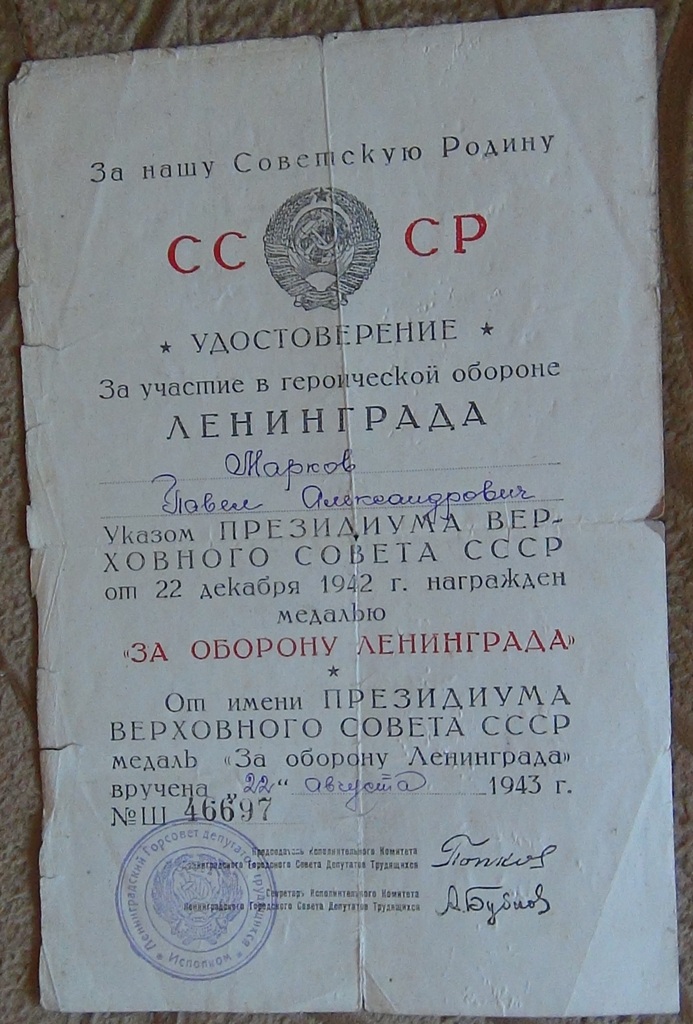 За нашу Советскую Родину
СС СР
★ УДОСТОВЕРЕНИЕ ★
За участие в героической обороне
ЛЕНИНГРАДА
Марков
Павел Александрович
Указом ПРЕЗИДИУМА ВЕР-
ХОВНОГО СОВЕТА СССР
от 22 декабря 1942 г. награжден
медалью
«ЗА ОБОРОНУ ЛЕНИНГРАДА»
★
От имени ПРЕЗИДИУМА
ВЕРХОВНОГО СОВЕТА СССР
медаль «За оборону Ленинграда»
вручена „22“ августа 1943 г.
№ Ш 46697
Председатель Исполнительного Комитета
Ленинградского Городского Совета Депутатов Трудящихся
Попков
Секретарь Исполнительного Комитета
Ленинградского Городского Совета Депутатов Трудящихся
А.Бубнов
Ленинградский Горсовет депутатов трудящихся * Исполком *